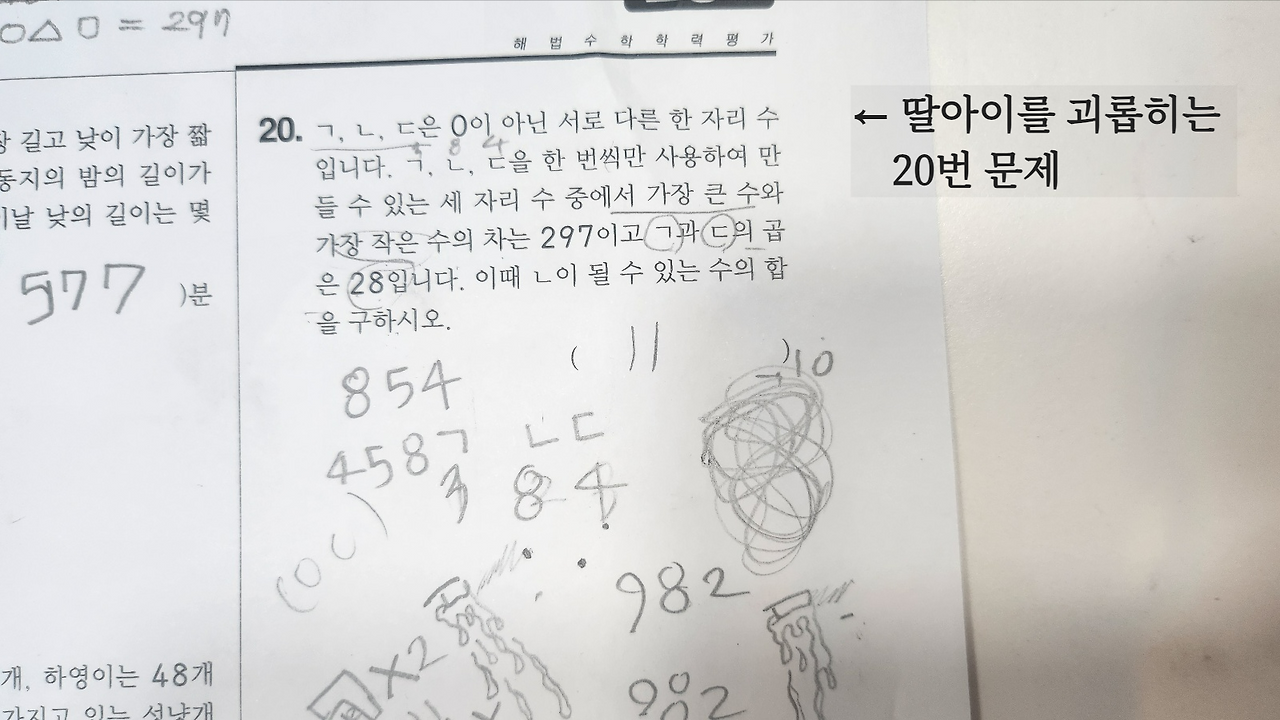 ○△□ = 297
해법수학학력평가
장 길고 낮이 가장 짧
동지의 밤의 길이가
이날 낮의 길이는 몇
577 )분
개, 하영이는 48개
가지고 있는 성냥개
20. ㄱ, ㄴ, ㄷ은 0이 아닌 서로 다른 한 자리 수
8 4
입니다. ㄱ, ㄴ, ㄷ을 한 번씩만 사용하여 만
들 수 있는 세 자리 수 중에서 가장 큰 수와
가장 작은 수의 차는 297이고 ㄱ과 ㄷ의 곱
은 28입니다. 이때 ㄴ이 될 수 있는 수의 합
을 구하시오.
( 11 )
→10
854
458
ㄱ ㄴ ㄷ
8 4
982
982
×2
← 딸아이를 괴롭히는
20번 문제